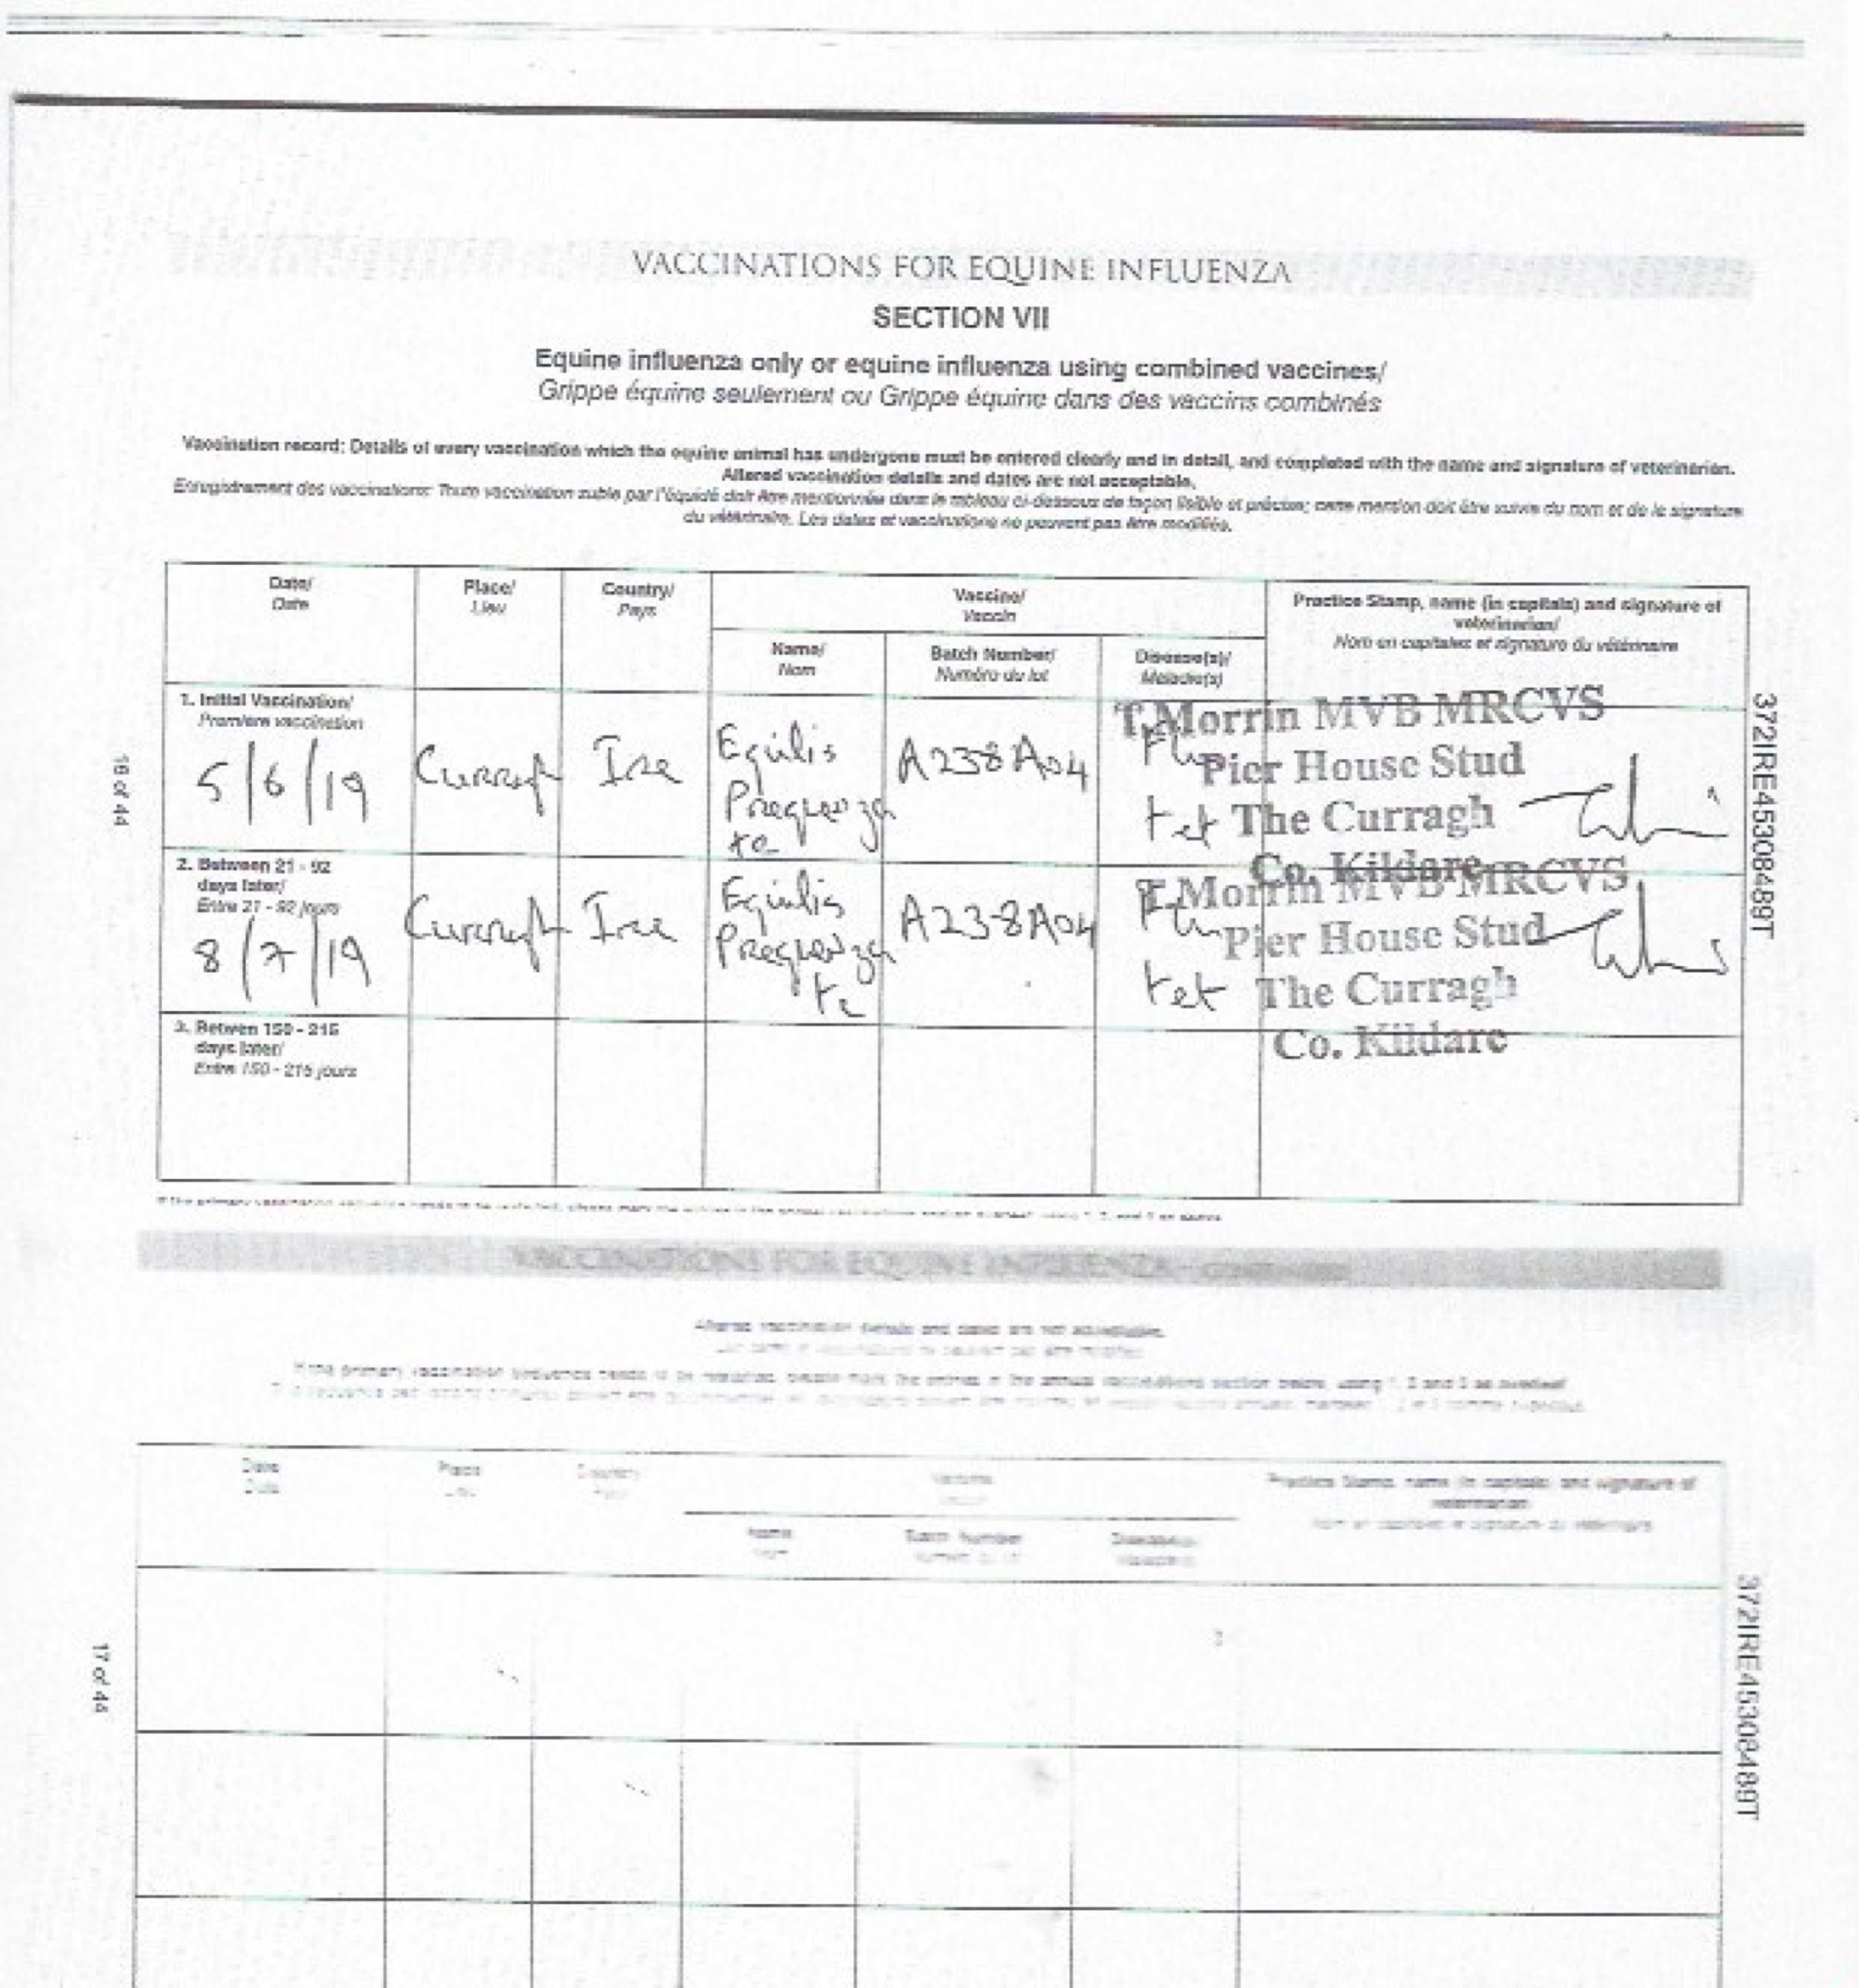 VACCINATIONS FOR EQUINE INFLUENZA
SECTION VII
Equine influenza only or equine influenza using combined vaccines/
Grippe équine seulement ou Grippe équine dans des vaccins combinés
Vaccination record: Details of every vaccination which the equine animal has undergone must be entered clearly and in detail, and completed with the name and signature of veterinarian.
Altered vaccination details and dates are not acceptable.
Enregistrement des vaccinations: Toute vaccination subie par l'équidé doit être mentionnée dans le tableau ci-dessous de façon lisible et précise; cette mention doit être suivie du nom et de la signature
du vétérinaire. Les dates et vaccinations ne peuvent pas être modifiés.
Date/
Date
Place/
Lieu
Country/
Pays
Vaccine/
Vaccin
Name/
Nom
Batch Number/
Numéro du lot
Disease(s)/
Maladie(s)
Practice Stamp, name (in capitals) and signature of
veterinarian/
Nom en capitales et signature du vétérinaire
1. Initial Vaccination/
Première vaccination
5/6/19
Ire
Equilis
Prequenza
te
A238A04
Flu
tet
T.Morrin MVB MRCVS
Pier House Stud
The Curragh
Co. Kildare
2. Between 21 - 92
days later/
Entre 21 - 92 jours
8/7/19
Ire
Equilis
Prequenza
te
A238A04
Flu
tet
T.Morrin MVB MRCVS
Pier House Stud
The Curragh
Co. Kildare
3. Betwen 150 - 215
days later/
Entre 150 - 215 jours
16 of 44
372IRE45308489T
VACCINATIONS FOR EQUINE INFLUENZA - continued
Altered vaccination details and dates are not acceptable.
If the primary vaccination sequence needs to be restarted, please mark the entries in the annual vaccinations section below, using 1, 2 and 3 as overleaf
Date
Date
Place
Country
Vaccine
Name
Batch Number
Practice Stamp, name (in capitals) and signature of
veterinarian
17 of 44
372IRE45308489T